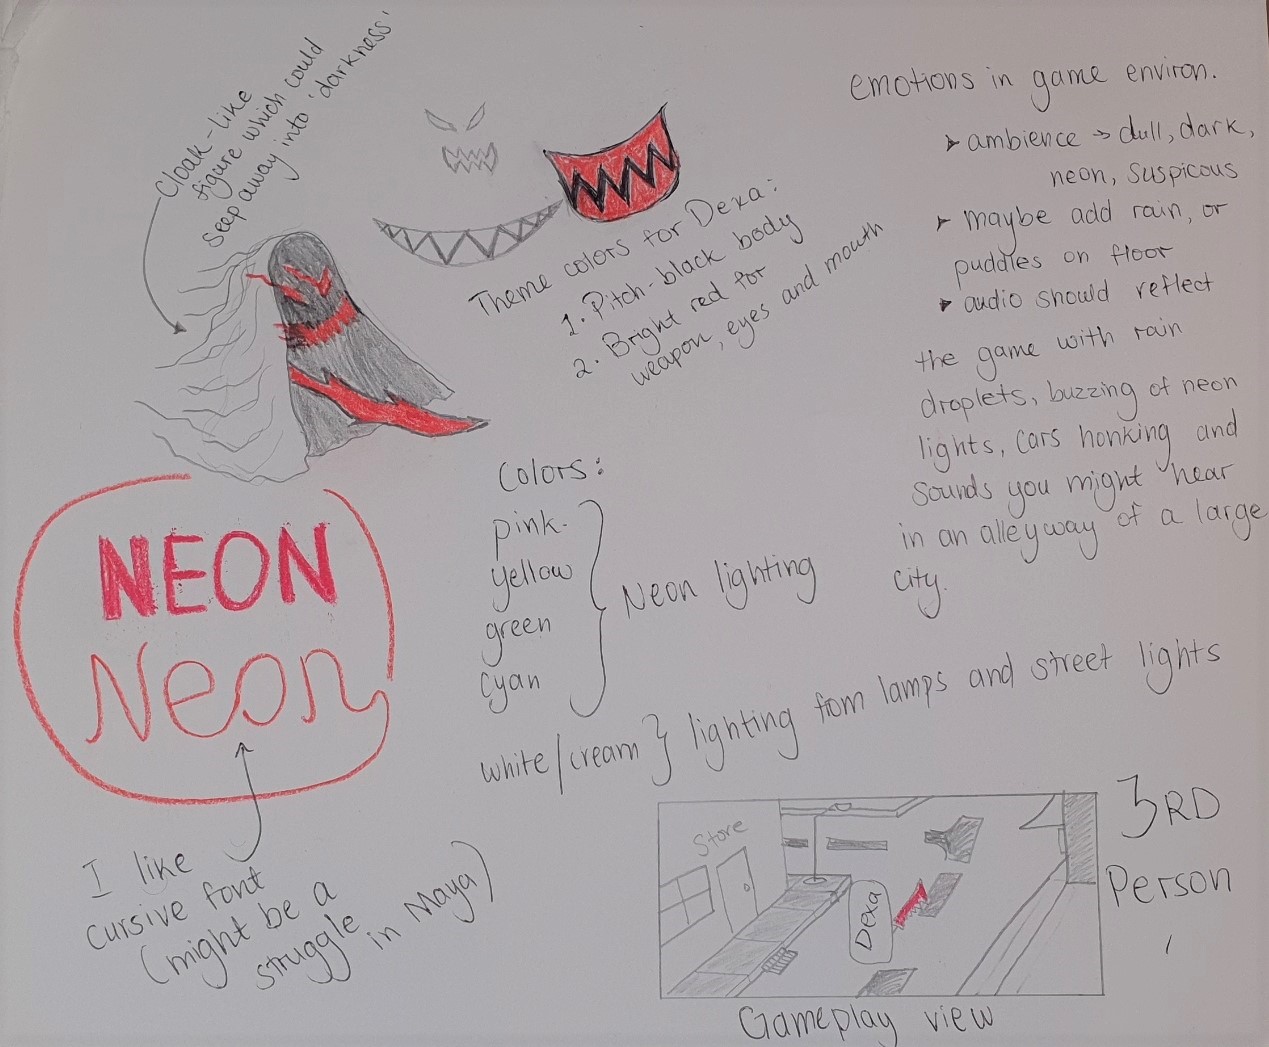 Cloak-like
figure which could
seep away into 'darkness'
Theme colors for Dexa:
1. Pitch-black body
2. Bright red for
weapon, eyes and mouth
emotions in game environ.
ambience → dull, dark,
neon, suspicous
maybe add rain, or
puddles on floor
audio should reflect
the game with rain
droplets, buzzing of neon
lights, cars honking and
sounds you might hear
in an alleyway of a large
city.
NEON
Neon
I like
cursive font
(might be a
struggle
in Maya)
Colors:
pink
yellow
green
cyan
Neon lighting
white/cream } lighting from lamps and street lights
Store
Dexa
3RD
Person
Gameplay view